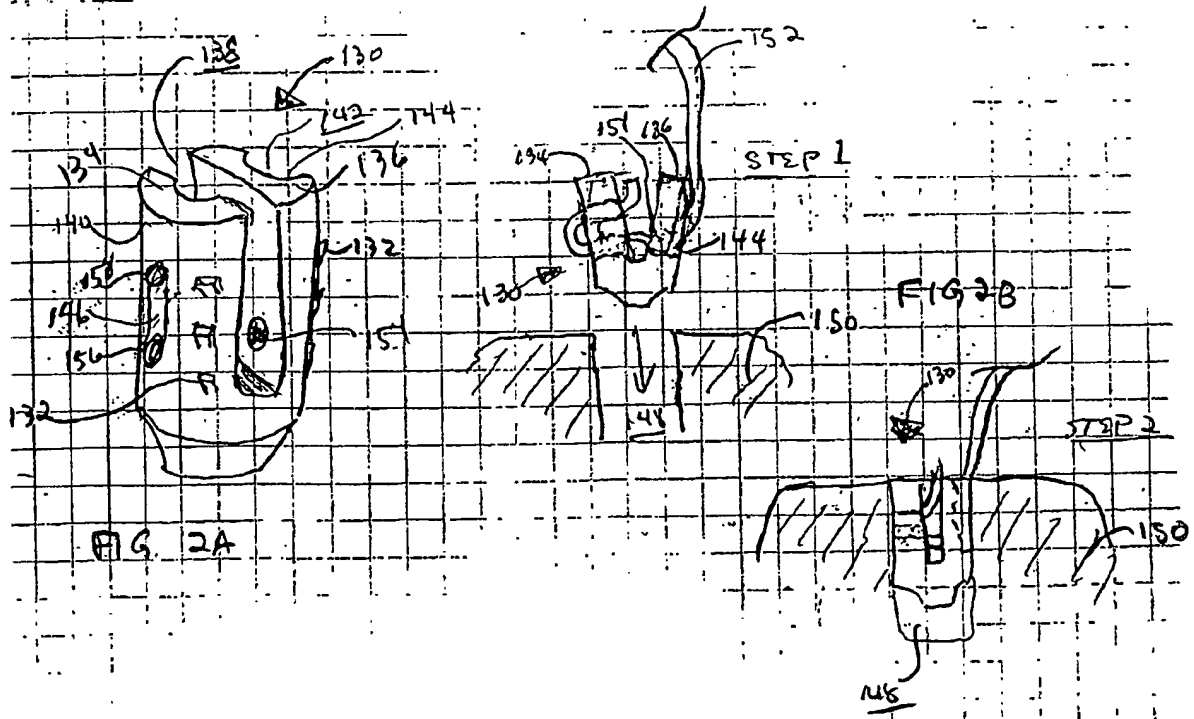 138
130
142
144
134
136
140
132
146
156
132
FIG. 2A
152
136
134
STEP 1
144
130
FIG 2B
150
148
130
STEP 2
150
148